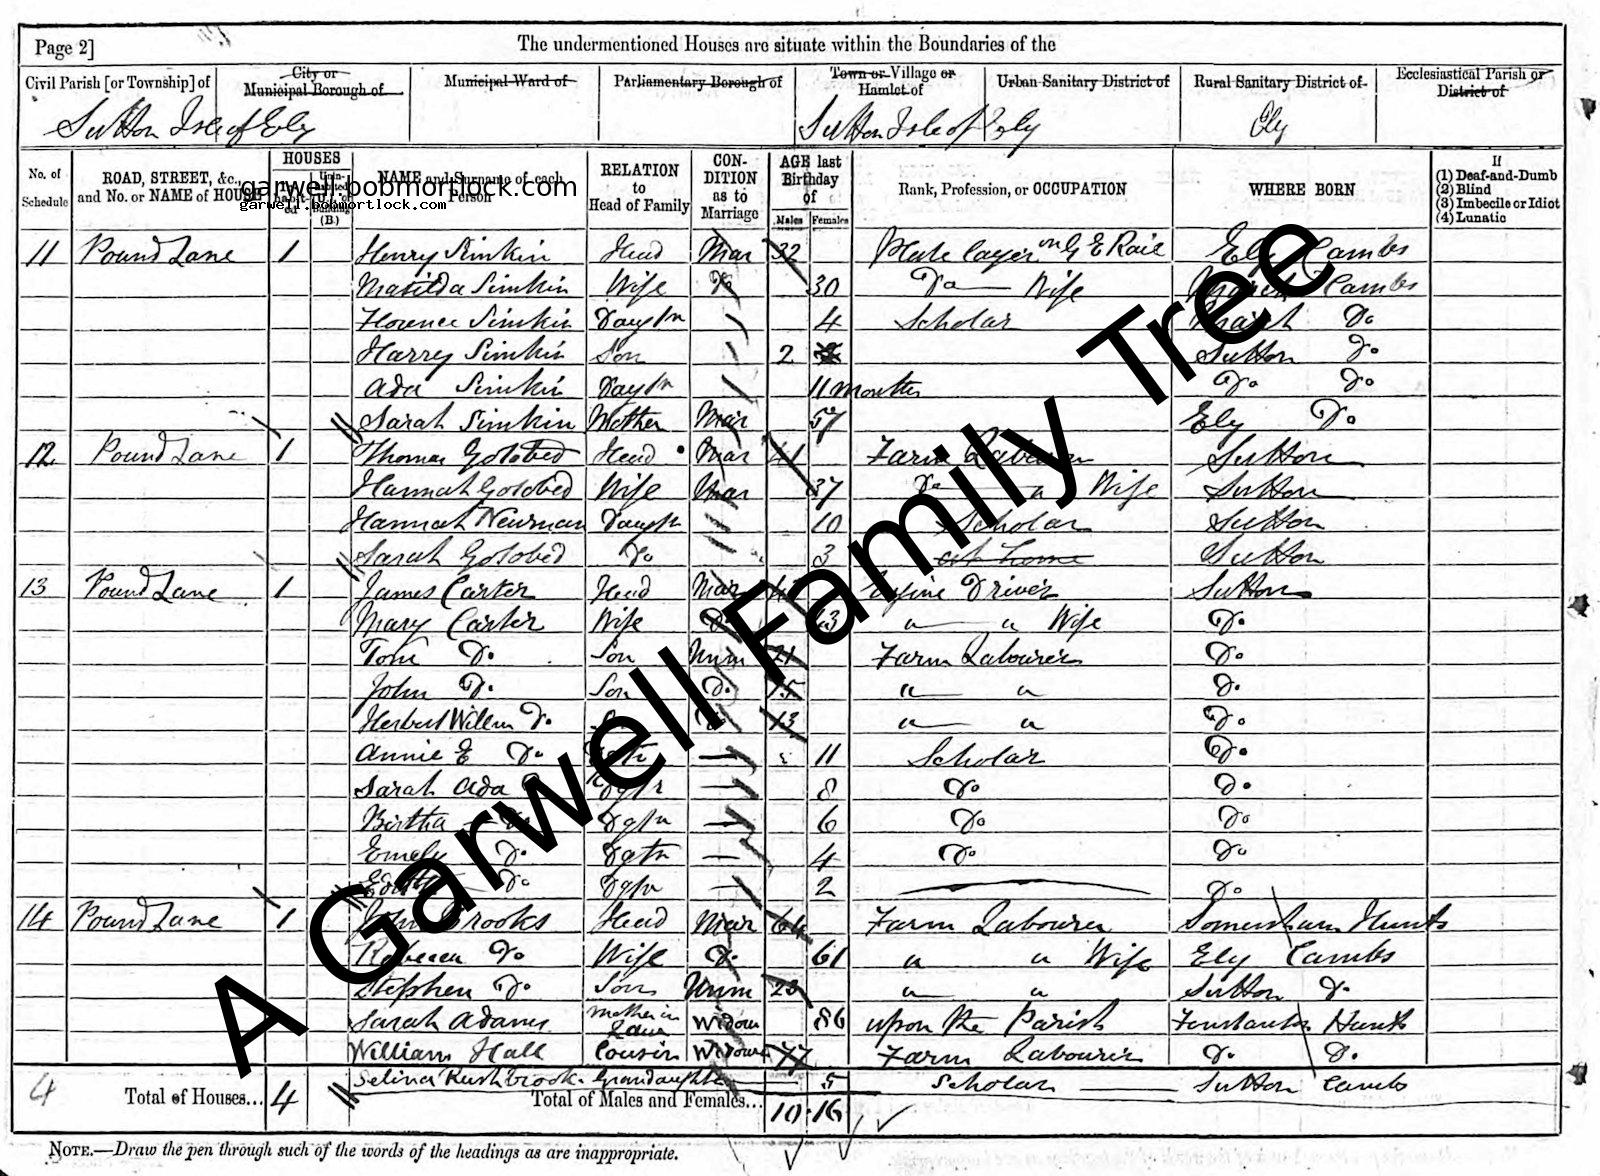 Page 2]
The undermentioned Houses are situate within the Boundaries of the
Civil Parish [or Township] of City or Municipal Borough of Municipal Ward of Parliamentary Borough of Town or Village or Hamlet of Urban Sanitary District of Rural Sanitary District of Ecclesiastical Parish or District of
Sutton Isle of Ely Sutton Isle of Ely Ely
No. of Schedule ROAD, STREET, &c., and No. or NAME of HOUSE HOUSES NAME and Surname of each Person RELATION to Head of Family CON- DITION as to Marriage AGE last Birthday of Males Females Rank, Profession, or OCCUPATION WHERE BORN If (1) Deaf-and-Dumb (2) Blind (3) Imbecile or Idiot (4) Lunatic
garwell.bobmortlock.com
garwell.bobmortlock.com
11 Pound Lane 1 Henry Simkin Head Mar 32 Plate layer on G E Rail Ely Cambs
Matilda Simkin Wife Do 30 Do Wife March Cambs
Florence Simkin Daugtr 4 Scholar March Do
Harry Simkin Son 2 Sutton Do
Ada Simkin Daugtr 11 months Do Do
Sarah Simkin Mother Mar 57 Ely Do
12 Pound Lane 1 Thomas Golobed Head Mar 41 Farm Labourer Sutton
Hannah Golobed Wife Mar 37 Do " Wife Sutton
Hannah Newman Daugtr 10 Scholar Sutton
Sarah Golobed Do 3 at home Sutton
13 Pound Lane 1 James Carter Head Mar Engine Driver Sutton
Mary Carter Wife Do 43 " " Wife Do
Tom Do Son Unm 21 Farm Labourer Do
John Do Son Do 15 " " Do
Herbert Willm Do 13 " " Do
Annie E Do 11 Scholar Do
Sarah Ada Dgtr 8 Do Do
Bertha Do Dgtr 6 Do Do
Emely Do Dgtr 4 Do Do
Edith Do Dgtr 2 Do
14 Pound Lane 1 John Crooks Head Mar 64 Farm Labourer Somersham Hunts
Rebecca Do Wife Do 61 " " Wife Ely Cambs
Stephen Do Son Unm 23 " " Sutton Do
Sarah Adams mother in Law Widow 86 upon the Parish Fenstanton Hunts
William Hall Cousin Widower 77 Farm Labourer Do Do
Selina Rushbrook Grandaughter 5 Scholar Sutton Cambs
4 Total of Houses... 4 Total of Males and Females... 10 16
NOTE.—Draw the pen through such of the words of the headings as are inappropriate.
A Garwell Family Tree